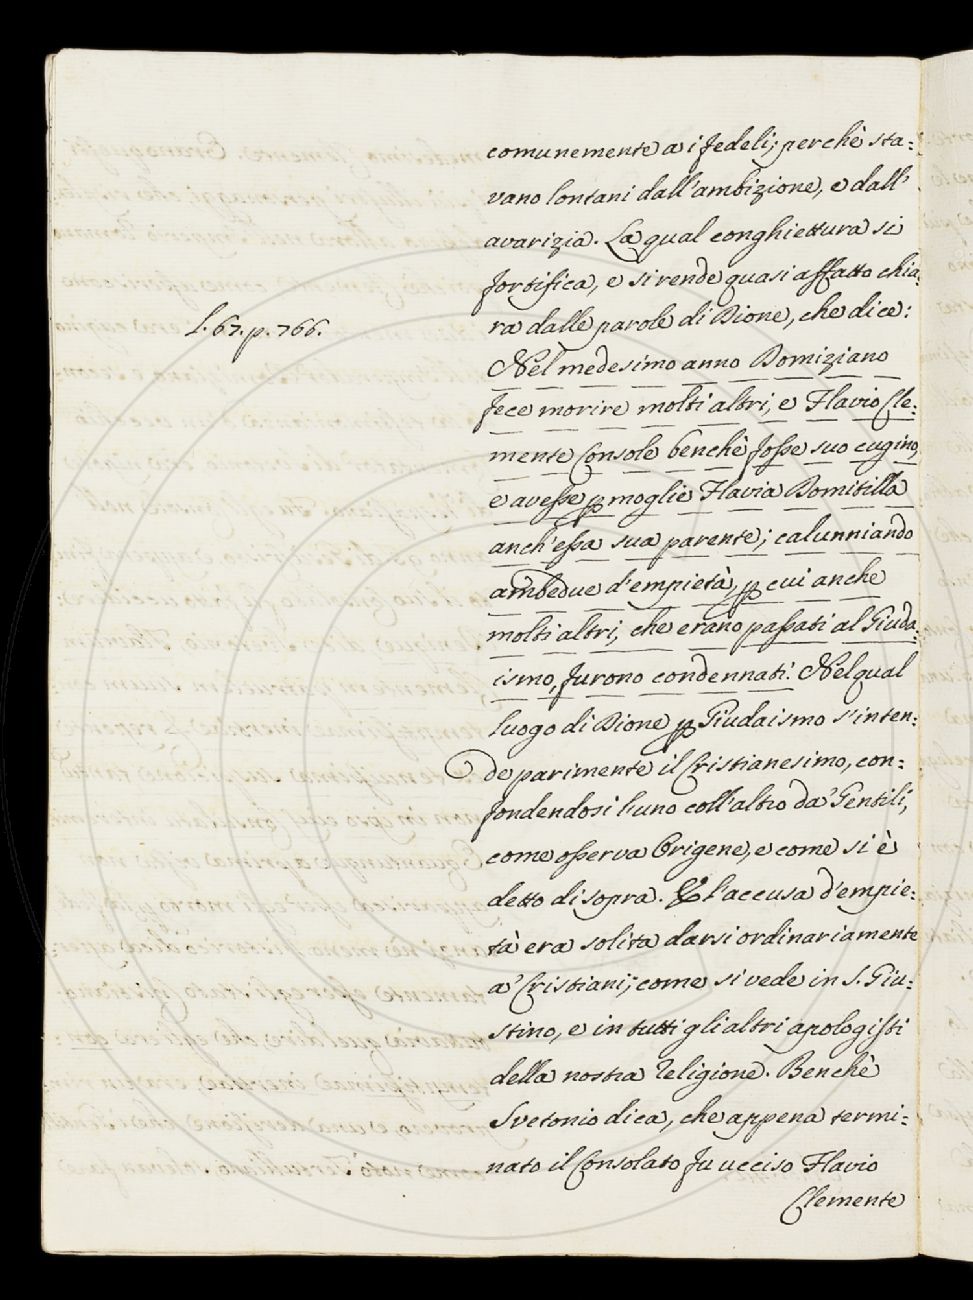 comunemente a i fedeli; perchè sta:
vano lontani dall'ambizione, e dall'
avarizia. La qual conghiettura si
fortifica, e si rende quasi affatto chia:
L. 67. p. 766.
ra dalle parole di Dione, che dice:
Nel medesimo anno Domiziano
fece morire molti altri, e Flavio Cle:
mente Console benchè fosse suo cugino,
e avesse ꝑ moglie Flavia Domitilla
anch'essa sua parente; calunniando
ambedue d'empietà, ꝑ cui anche
molti altri, che erano passati al Giuda:
ismo, furono condennati. Nel qual
luogo di Dione ꝑ Giudaismo s'inten:
de parimente il Cristianesimo, con:
fondendosi l'uno coll'altro da' Gentili,
come osserva Origene, e come si è
detto di sopra. E l'accusa d'empie:
tà era solita darsi ordinariamente
a' Cristiani; come si vede in S. Giu:
stino, e in tutti gli altri apologisti
della nostra Religione. Benchè
Svetonio dica, che appena termi:
nato il Consolato fu ucciso Flavio
Clemente